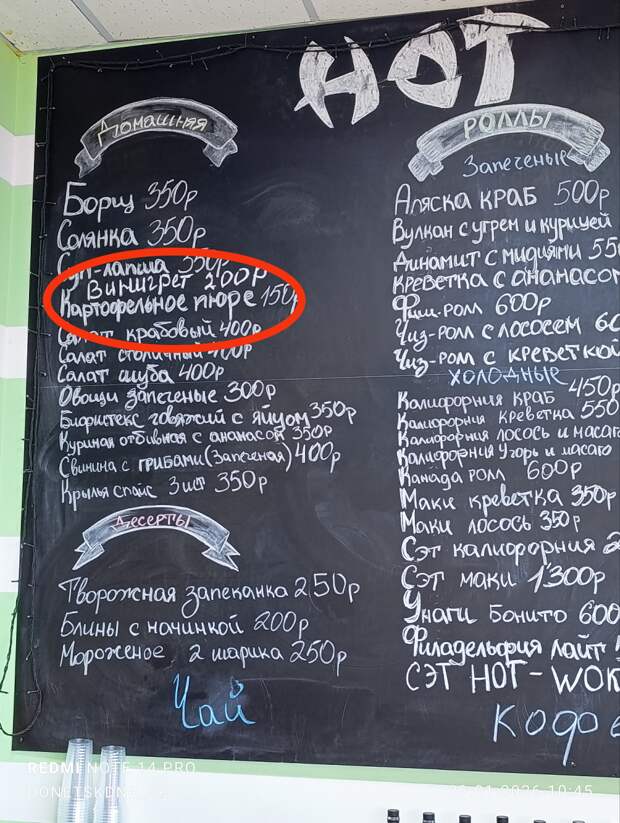 HOT
Домашняя
Борщ 350р
Солянка 350р
Суп-лапша 350р
Винигрет 200р
Картофельное пюре 150р
Салат крабовый 400р
Салат столичный 400р
Салат шуба 400р
Овощи запеченые 300р
Бифштекс говяжий с яйцом 350р
Куриная отбивная с ананасом 350р
Свинина с грибами (Запеченая) 400р
Крылья спайс 3 шт 350р
Десерты
Творожная запеканка 250р
Блины с начинкой 200р
Мороженое 2 шарика 250р
Чай
Роллы
Запеченые
Аляска краб 500р
Вулкан с угрем и курицей
Динамит с мидиями 55
Креветка с ананасом
Фиш-ролл 600р
Чиз-ролл с лососем 60
Чиз-ролл с креветкой
Холодные
Калифорния краб 450р
Калифорния креветка 550
Калифорния лосось и масаго
Калифорния Угорь и масаго
Канада ролл 600р
Маки креветка 350р
Маки лосось 350р
Сэт калифорния 2
Сэт маки 1300р
Унаги Бонито 600
Филадельфия лайт
СЭТ HOT-WOK
Кофе
REDMI NOTE 14 PRO
DONETSKDNR
01.2026 10:45